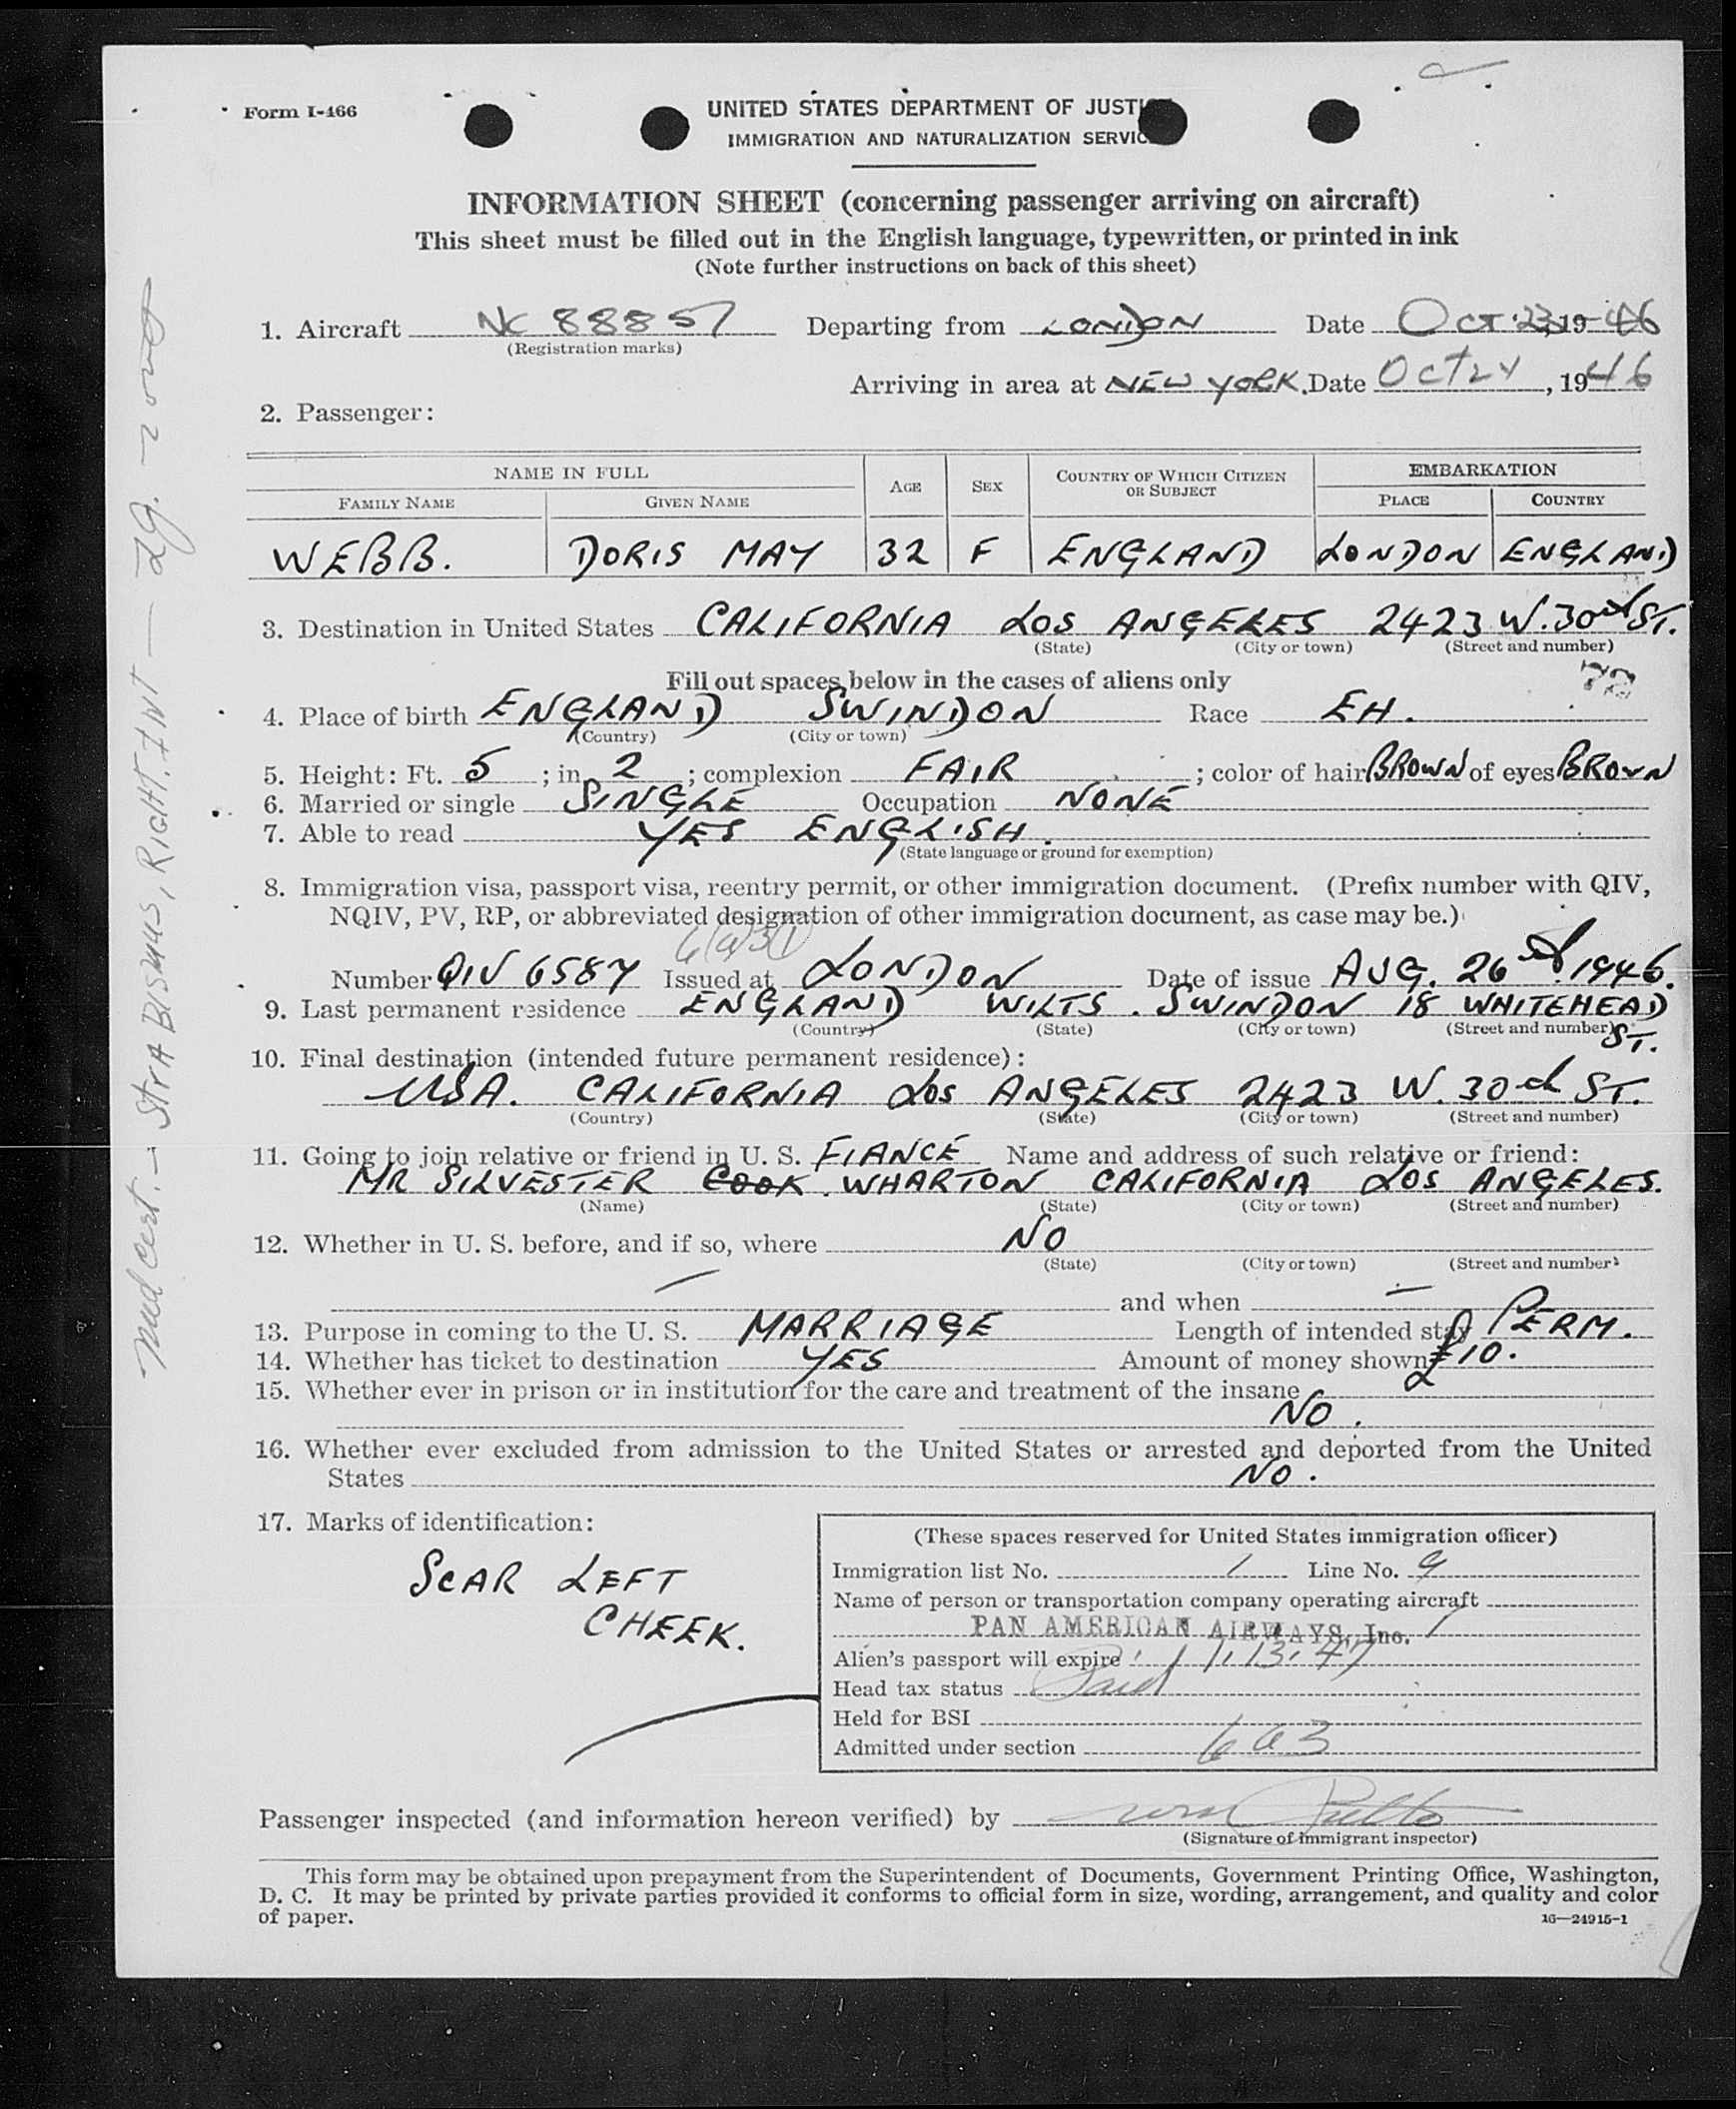 Form I-466
UNITED STATES DEPARTMENT OF JUSTI
IMMIGRATION AND NATURALIZATION SERVIC
INFORMATION SHEET (concerning passenger arriving on aircraft)
This sheet must be filled out in the English language, typewritten, or printed in ink
(Note further instructions on back of this sheet)
1. Aircraft NC 88857 Departing from LONDON Date Oct. 23, 19 46
(Registration marks)
Arriving in area at NEW YORK. Date Oct 24, 1946
2. Passenger:
NAME IN FULL AGE SEX COUNTRY OF WHICH CITIZEN OR SUBJECT EMBARKATION
FAMILY NAME GIVEN NAME PLACE COUNTRY
WEBB. DORIS MAY 32 F ENGLAND LONDON ENGLAND
3. Destination in United States CALIFORNIA LOS ANGELES 2423 W. 30th ST.
(State) (City or town) (Street and number)
Fill out spaces below in the cases of aliens only
4. Place of birth ENGLAND SWINDON Race EH.
(Country) (City or town)
5. Height: Ft. 5 ; in. 2 ; complexion FAIR ; color of hair BROWN of eyes BROWN
6. Married or single SINGLE Occupation NONE
7. Able to read YES ENGLISH.
(State language or ground for exemption)
8. Immigration visa, passport visa, reentry permit, or other immigration document. (Prefix number with QIV,
NQIV, PV, RP, or abbreviated designation of other immigration document, as case may be.)
Number QIV 6587 Issued at LONDON Date of issue AUG. 26th. 1946.
9. Last permanent residence ENGLAND WILTS. SWINDON 18 WHITEHEAD ST.
(Country) (State) (City or town) (Street and number)
10. Final destination (intended future permanent residence):
USA. CALIFORNIA LOS ANGELES 2423 W. 30th ST.
(Country) (State) (City or town) (Street and number)
11. Going to join relative or friend in U. S. FIANCÉ Name and address of such relative or friend:
MR SILVESTER COOK. WHARTON CALIFORNIA LOS ANGELES.
(Name) (State) (City or town) (Street and number)
12. Whether in U. S. before, and if so, where NO
(State) (City or town) (Street and number)
— and when —
13. Purpose in coming to the U. S. MARRIAGE Length of intended stay PERM.
14. Whether has ticket to destination YES Amount of money shown £10.
15. Whether ever in prison or in institution for the care and treatment of the insane
NO.
16. Whether ever excluded from admission to the United States or arrested and deported from the United
States NO.
17. Marks of identification:
SCAR LEFT
CHEEK.
(These spaces reserved for United States immigration officer)
Immigration list No. 1 Line No. 9
Name of person or transportation company operating aircraft
PAN AMERICAN AIRWAYS, Inc.
Alien's passport will expire 1.13.47
Head tax status Paid
Held for BSI
Admitted under section 6a3
Passenger inspected (and information hereon verified) by
(Signature of immigrant inspector)
This form may be obtained upon prepayment from the Superintendent of Documents, Government Printing Office, Washington,
D. C. It may be printed by private parties provided it conforms to official form in size, wording, arrangement, and quality and color
of paper.
16—24915-1
Med Cert. – STRABISMUS, RIGHT. INT —